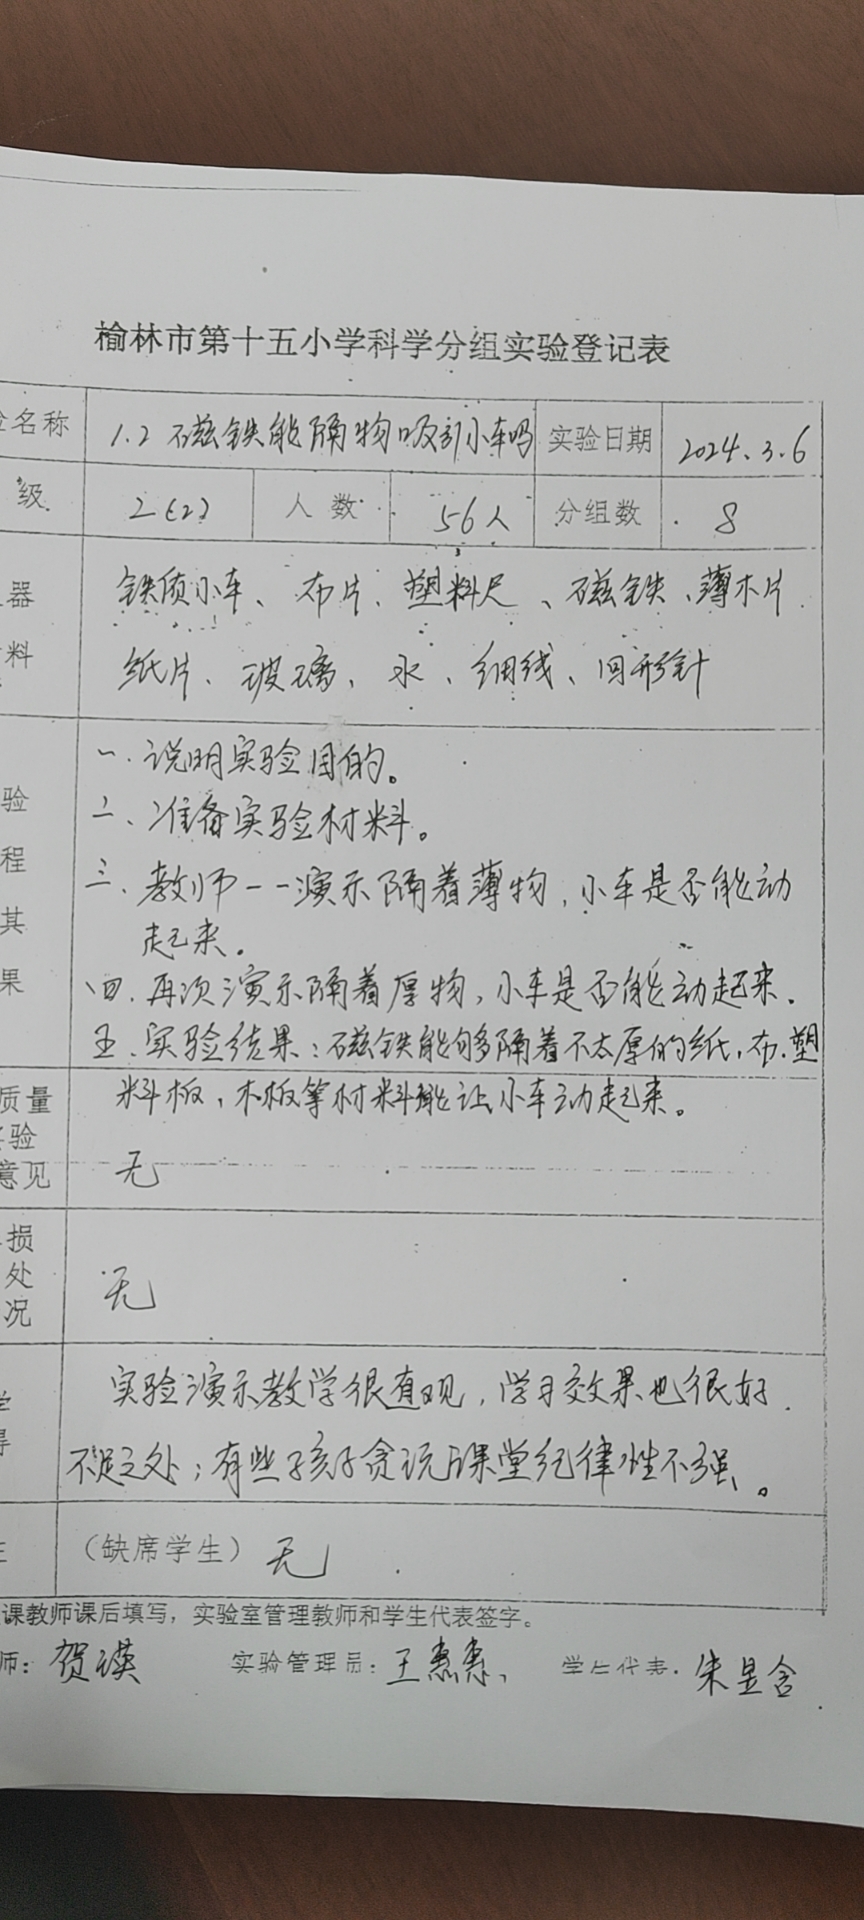 榆林市第十五小学科学分组实验登记表
名称 1.2 磁铁能隔物吸引小车吗 实验日期 2024.3.6
级 2(2) 人数 56人 分组数 8
器 铁质小车、布片、塑料尺、磁铁、薄木片
料 纸片、玻璃、水、细线、回形针
一.说明实验目的。
验 二、准备实验材料。
程 三.教师--演示隔着薄物,小车是否能动
其 起来。
果 四.再次演示隔着厚物,小车是否能动起来.
五.实验结果:磁铁能够隔着不太厚的纸,布.塑
质量 料板,木板等材料能让小车动起来。
验
意见 无
损
处 无
况
实验演示教学很直观,学习效果也很好.
不足之处;有些孩子贪玩,课堂纪律性不强。
(缺席学生) 无
课教师课后填写,实验室管理教师和学生代表签字。
师: 贺瑛 实验管理员: 王惠惠 学生代表. 朱昱含